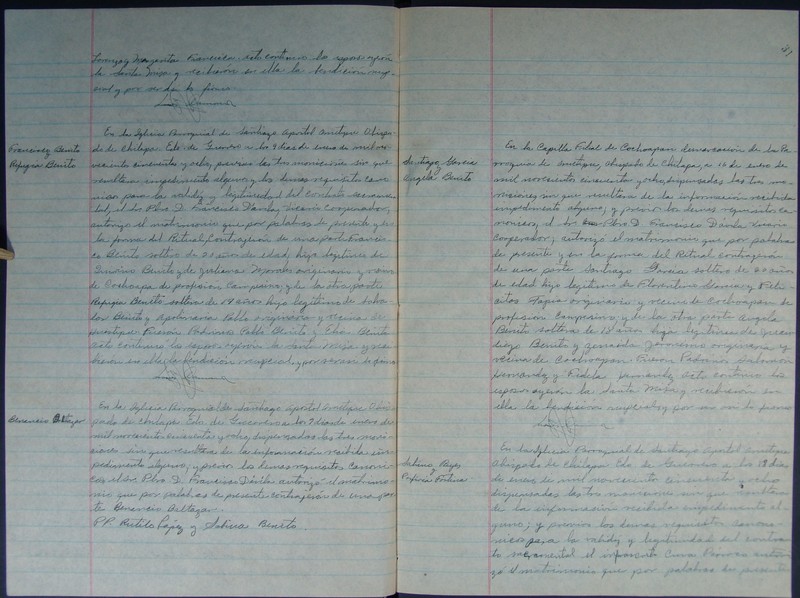 Lorenzo y Margarita Francisca. Acto continuo la
la Santa Misa y recibieron en ella la bendicion nup-
cial y por ser da fe firmo
En la Iglesia Parroquial de Santiago Apostol Obispa-
do de Chilapa. Edo de Guerrero a los 9 dias de enero de mil no-
Francisco Benito
vecientos cincuenta y ocho, previas las tres moniciones sin que
Refugia Benito
resultara impedimento alguno y los demas requisitos cano-
nicos para la validez y legitimidad del contrato sacramen-
tal, el Sr. Pbro. D. Francisco Dávila, Vicario Cooperador,
autorizo el matrimonio que por palabras de presente y en
la forma del Ritual, contrageron de una parte Francis-
co Benito soltero de 20 años de edad, hijo legitimo de
Benito y de Juliana Morales originario y vecino
de Cochoapa de profesion Campesino; y de la otra parte
Refugia Benito soltera de 19 años hija legitima de
Benito y Apolinaria Pablo originaria y vecina de
Pablo Benito y Benito
acto continuo la Santa Misa y reci-
bieron en ella la bendicion nupcial, y por ser en fe firmo
En la Iglesia Parroquial de Santiago Apostol Obis-
pado de Chilapa Edo. de Guerrero a los 9 dias de enero de
Venancio Baltazar
mil novecientos cincuenta y ocho, dispensadas las tres moni-
ciones sin que resultara de la informacion recibida im-
pedimento alguno; y previos los demas requisitos canoni-
cos el Sr. Pbro. D. Francisco Dávila autorizó el matrimo-
nio que por palabras de presente contrageron de una par-
te Venancio Baltazar.
PP. Rutilo López y Benito.
41
En la Capilla Filial de Cochoapan demarcacion de la Pa-
Santiago Garcia
rroquia de obispado de Chilapa, a 10 de enero de
y
Angela Benito
mil novecientos cincuenta y ocho, dispensadas las tres mo-
niciones sin que resultara de la informacion recibida
impedimento alguno; y previos los demas requisitos ca-
nonicos, el Sr. Pbro D. Francisco Dávila vicario
cooperador, autorizo el matrimonio que por palabras
de presente y en la forma del Ritual contrageron
de una parte Santiago Garcia soltero de 20 años
de edad hijo legitimo de Florentino Garcia y
Tapia originario y vecino de Cochoapan de
profesion Campesino, y de la otra parte Angela
Benito soltera de 18 años hija legitima de
Benito y Zenaida originaria y
vecina de Cochoapan. Fueron Padrinos Salvador
Hernandez y Hernandez acto continuo la
la Santa Misa y recibieron en
ella la bendicion nupcial y por firmo
En la Iglesia Parroquial de Santiago Apostol
Reyes
obispado de Chilapa Edo. de Guerrero a los 13 dias
y
de enero de mil novecientos cincuenta y ocho
dispensadas las tres moniciones sin que resultara
de la informacion recibida impedimento al-
guno; y previos los demas requisitos cano-
nicos para la validez y legitimidad del contra-
to sacramental el infrascrito Cura Parroco autori-
zó el matrimonio que por palabras de presente